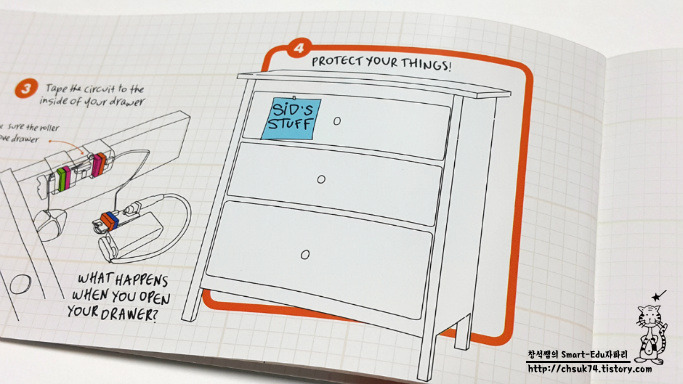 3
Tape the circuit to the
inside of your drawer
sure the roller
drawer
WHAT HAPPENS
WHEN YOU OPEN
YOUR DRAWER?
4
PROTECT YOUR THINGS!
SID'S
STUFF
창식쌤의 Smart-Edu자파리
http://chsuk74.tistory.com